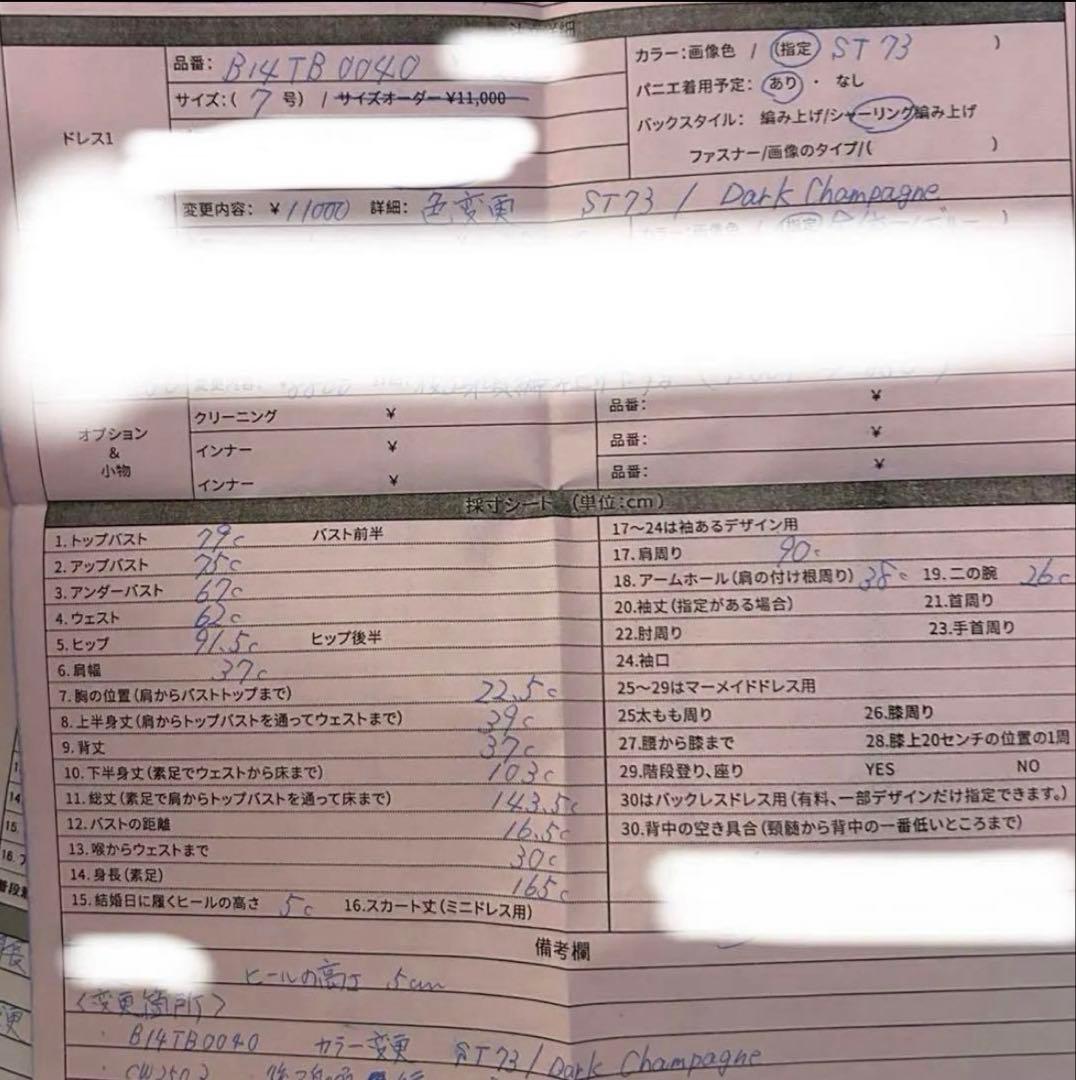 品番: B14TB0040
カラー:画像色 / (指定 ST73 )
サイズ:( 7 号) / サイズオーダー ¥11,000
パニエ着用予定: あり ・ なし
ドレス1
バックスタイル: 編み上げ/シャーリング編み上げ
ファスナー/画像のタイプ/( )
変更内容: ¥11000 詳細: 色変更 ST73 / Dark Champagne
カラー:画像色 / (指定 )
オプション
&
小物
クリーニング ¥
品番: ¥
インナー ¥
品番: ¥
インナー ¥
品番: ¥
採寸シート (単位:cm)
1.トップバスト 79c バスト前半
2.アップバスト 75c
3.アンダーバスト 67c
4.ウェスト 62c
5.ヒップ 91.5c ヒップ後半
6.肩幅 37c
7.胸の位置(肩からバストトップまで) 22.5c
8.上半身丈(肩からトップバストを通ってウェストまで) 39c
9.背丈 37c
10.下半身丈(素足でウェストから床まで) 103c
11.総丈(素足で肩からトップバストを通って床まで) 143.5c
12.バストの距離 16.5c
13.喉からウェストまで 30c
14.身長(素足) 165c
15.結婚日に履くヒールの高さ 5c 16.スカート丈(ミニドレス用)
17〜24は袖あるデザイン用
17.肩周り 90c
18.アームホール(肩の付け根周り) 38c 19.二の腕 26c
20.袖丈(指定がある場合) 21.首周り
22.肘周り 23.手首周り
24.袖口
25〜29はマーメイドドレス用
25太もも周り 26.膝周り
27.腰から膝まで 28.膝上20センチの位置の1周
29.階段登り、座り YES NO
30はバックレスドレス用(有料、一部デザインだけ指定できます。)
30.背中の空き具合(頸髄から背中の一番低いところまで)
備考欄
ヒールの高さ 5cm
〈変更箇所〉
・B14TB0040 カラー変更 ST73/Dark Champagne